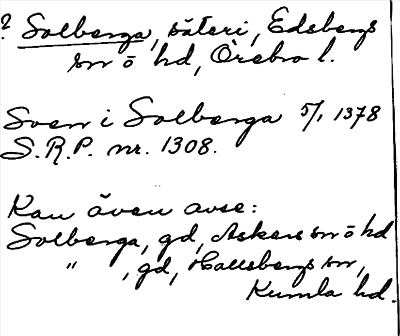 ? Solberga, säteri, Edsbergs
sn o hd, Örebro l.
Sven i Solberga 5/1 1378
S.R.P. nr. 1308.
Kan även avse:
Solberga, gd, Askers sn o hd
" , gd, Hallsbergs sn,
Kumla hd.